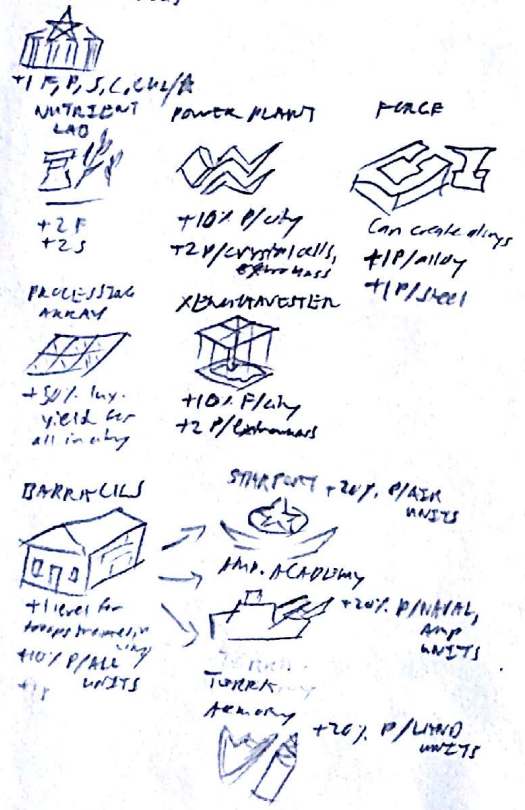 +1 F, P, S, C, CUL/
NUTRIENT
LAB
+2 F
+2 S
POWER PLANT
+10% P/city
+2 P/crystal cells,
FORGE
Can create alloys
+1 P/alloy
+1 P/steel
PROCESSING
ARRAY
+50% lux.
yield for
all in city
XENOHARVESTER
+10% F/city
+2 P/
BARRACKS
+1 level for
troops trained in
city
+10% P/ALL
UNITS
STARPORT
+20% P/AIR
UNITS
AMP. ACADEMY
+20% P/NAVAL,
AMP
UNITS
Armory
+20% P/LAND
UNITS